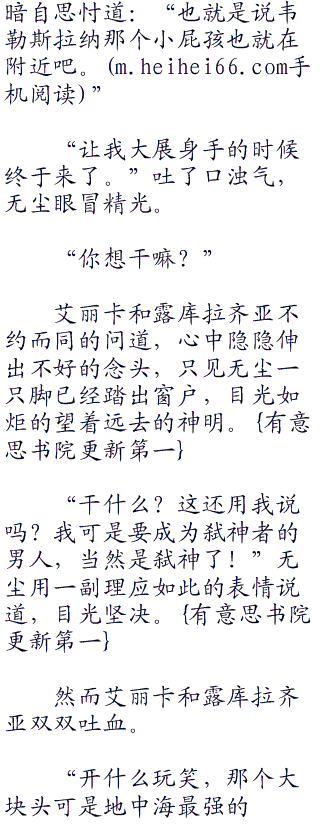 暗自思忖道：“也就是说韦
勒斯拉纳那个小屁孩也就在
附近吧。(m.heihei66.com手
机阅读)”
“让我大展身手的时候
终于来了。”吐了口浊气，
无尘眼冒精光。
“你想干嘛？”
艾丽卡和露库拉齐亚不
约而同的问道，心中隐隐伸
出不好的念头，只见无尘一
只脚已经踏出窗户，目光如
炬的望着远去的神明。{有意
思书院更新第一}
“干什么？这还用我说
吗？我可是要成为弑神者的
男人，当然是弑神了！”无
尘用一副理应如此的表情说
道，目光坚决。{有意思书院
更新第一}
然而艾丽卡和露库拉齐
亚双双吐血。
“开什么玩笑，那个大
块头可是地中海最强的